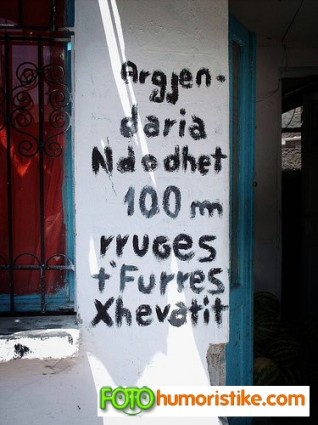 Argjen-
daria
Ndodhet
100 m
rruges
t'Furres
Xhevatit
FOTOhumoristike.com